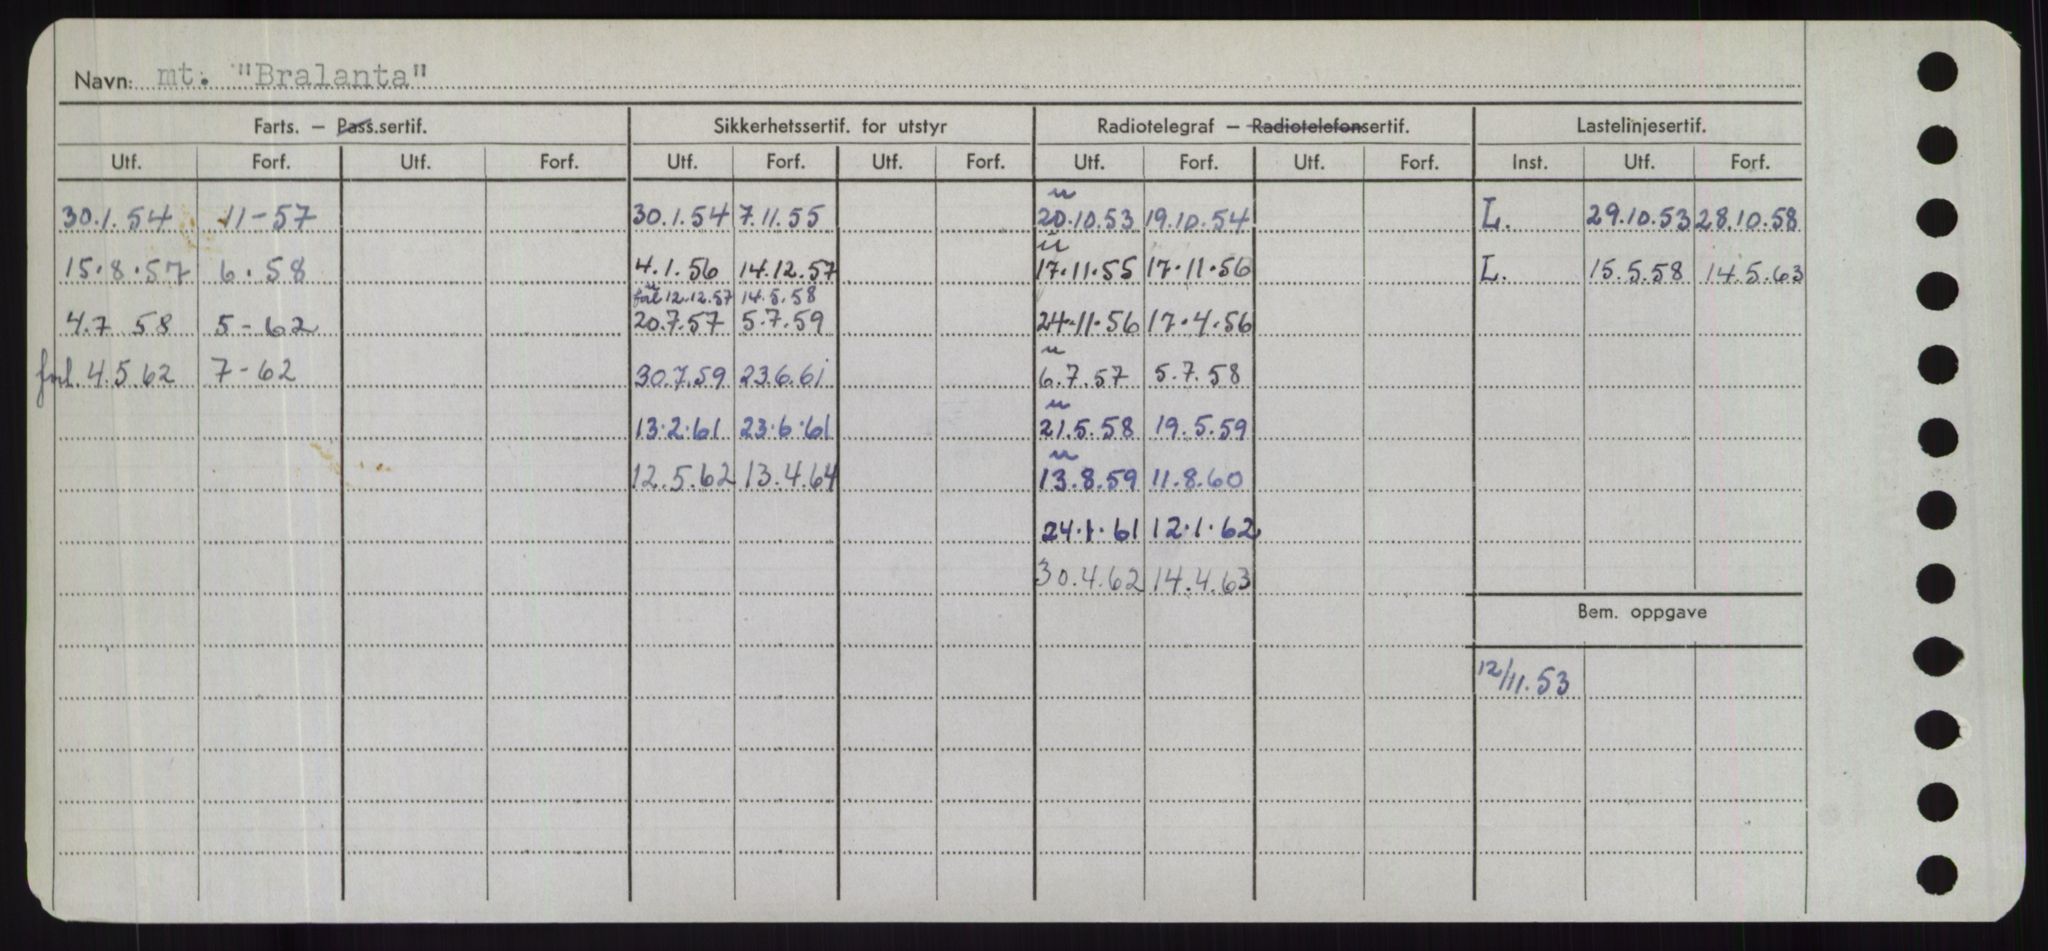 Navn: mt. "Bralanta"
Farts. — Pass.sertif. Sikkerhetssertif. for utstyr Radiotelegraf — Radiotelefonsertif. Lastelinjesertif.
Utf. Forf. Utf. Forf. Utf. Forf. Utf. Forf. Utf. Forf. Utf. Forf. Inst. Utf. Forf.
u
30.1.54 11-57 30.1.54 7.11.55 20.10.53 19.10.54 L. 29.10.53 28.10.58
u
15.8.57 6.58 4.1.56 14.12.57 17.11.55 17.11.56 L. 15.5.58 14.5.63
12.12.57 14.5.58
4.7 58 5-62 20.7.57 5.7.59 24.11.56 17.4.56
u
forl. 4.5.62 7-62 30.7.59 23.6.61 6.7.57 5.7.58
u
13.2.61 23.6.61 21.5.58 19.5.59
u
12.5.62 13.4.64 13.8.59 11.8.60
24.1.61 12.1.62
30.4.62 14.4.63
Bem. oppgave
12/11.53